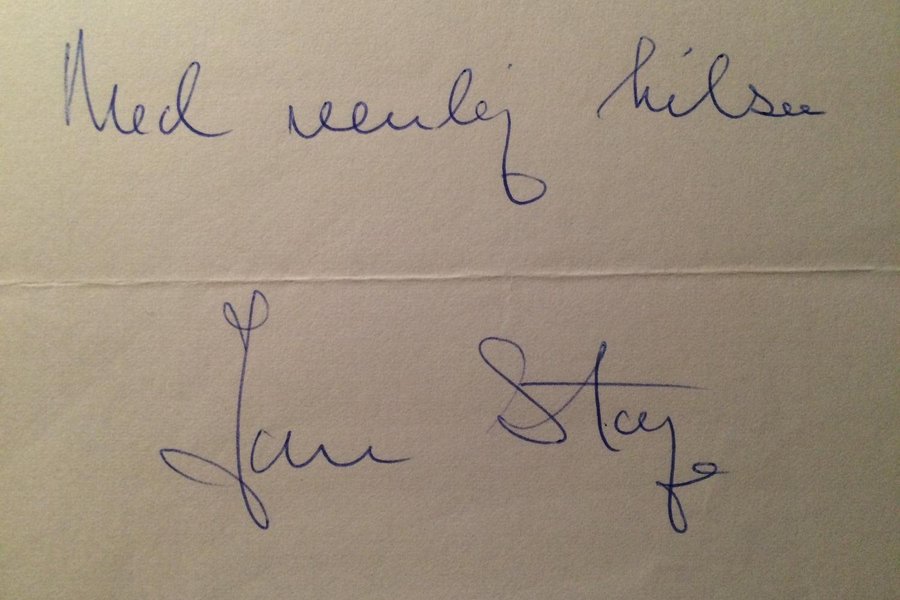 Med venlig hilsen
Jan Stage